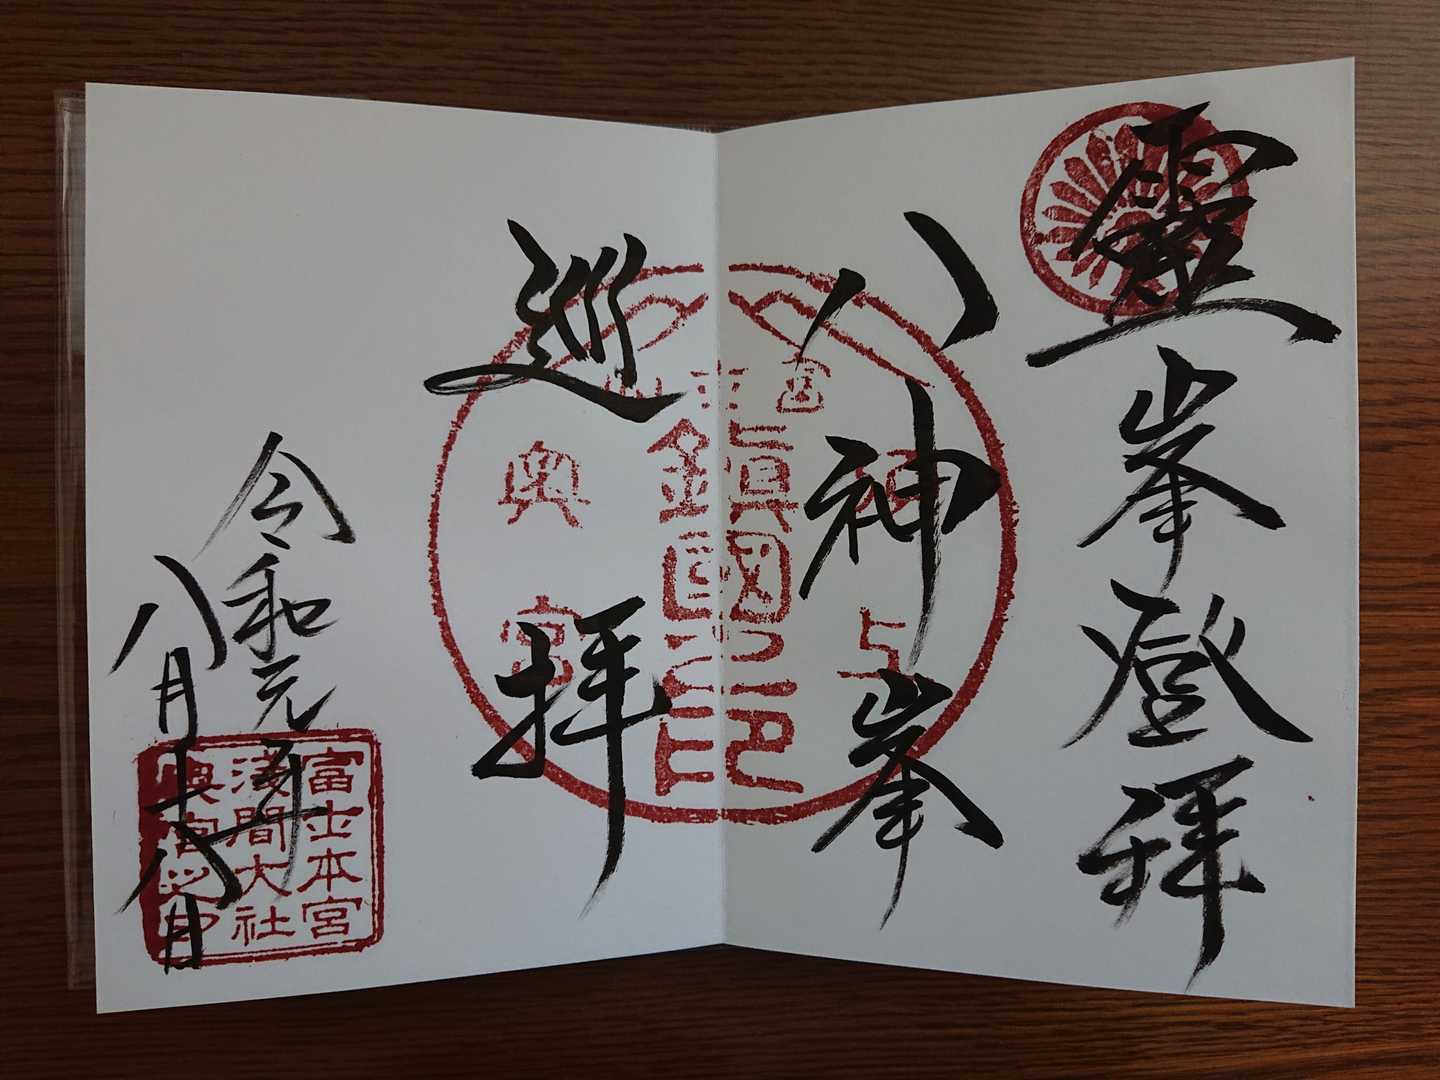 靈峯登拜
八神峯
巡拝
令和元年
八月十八日
富士山頂上
鎮國之印
奥宮
富士本宮
淺間大社
奥宮之印